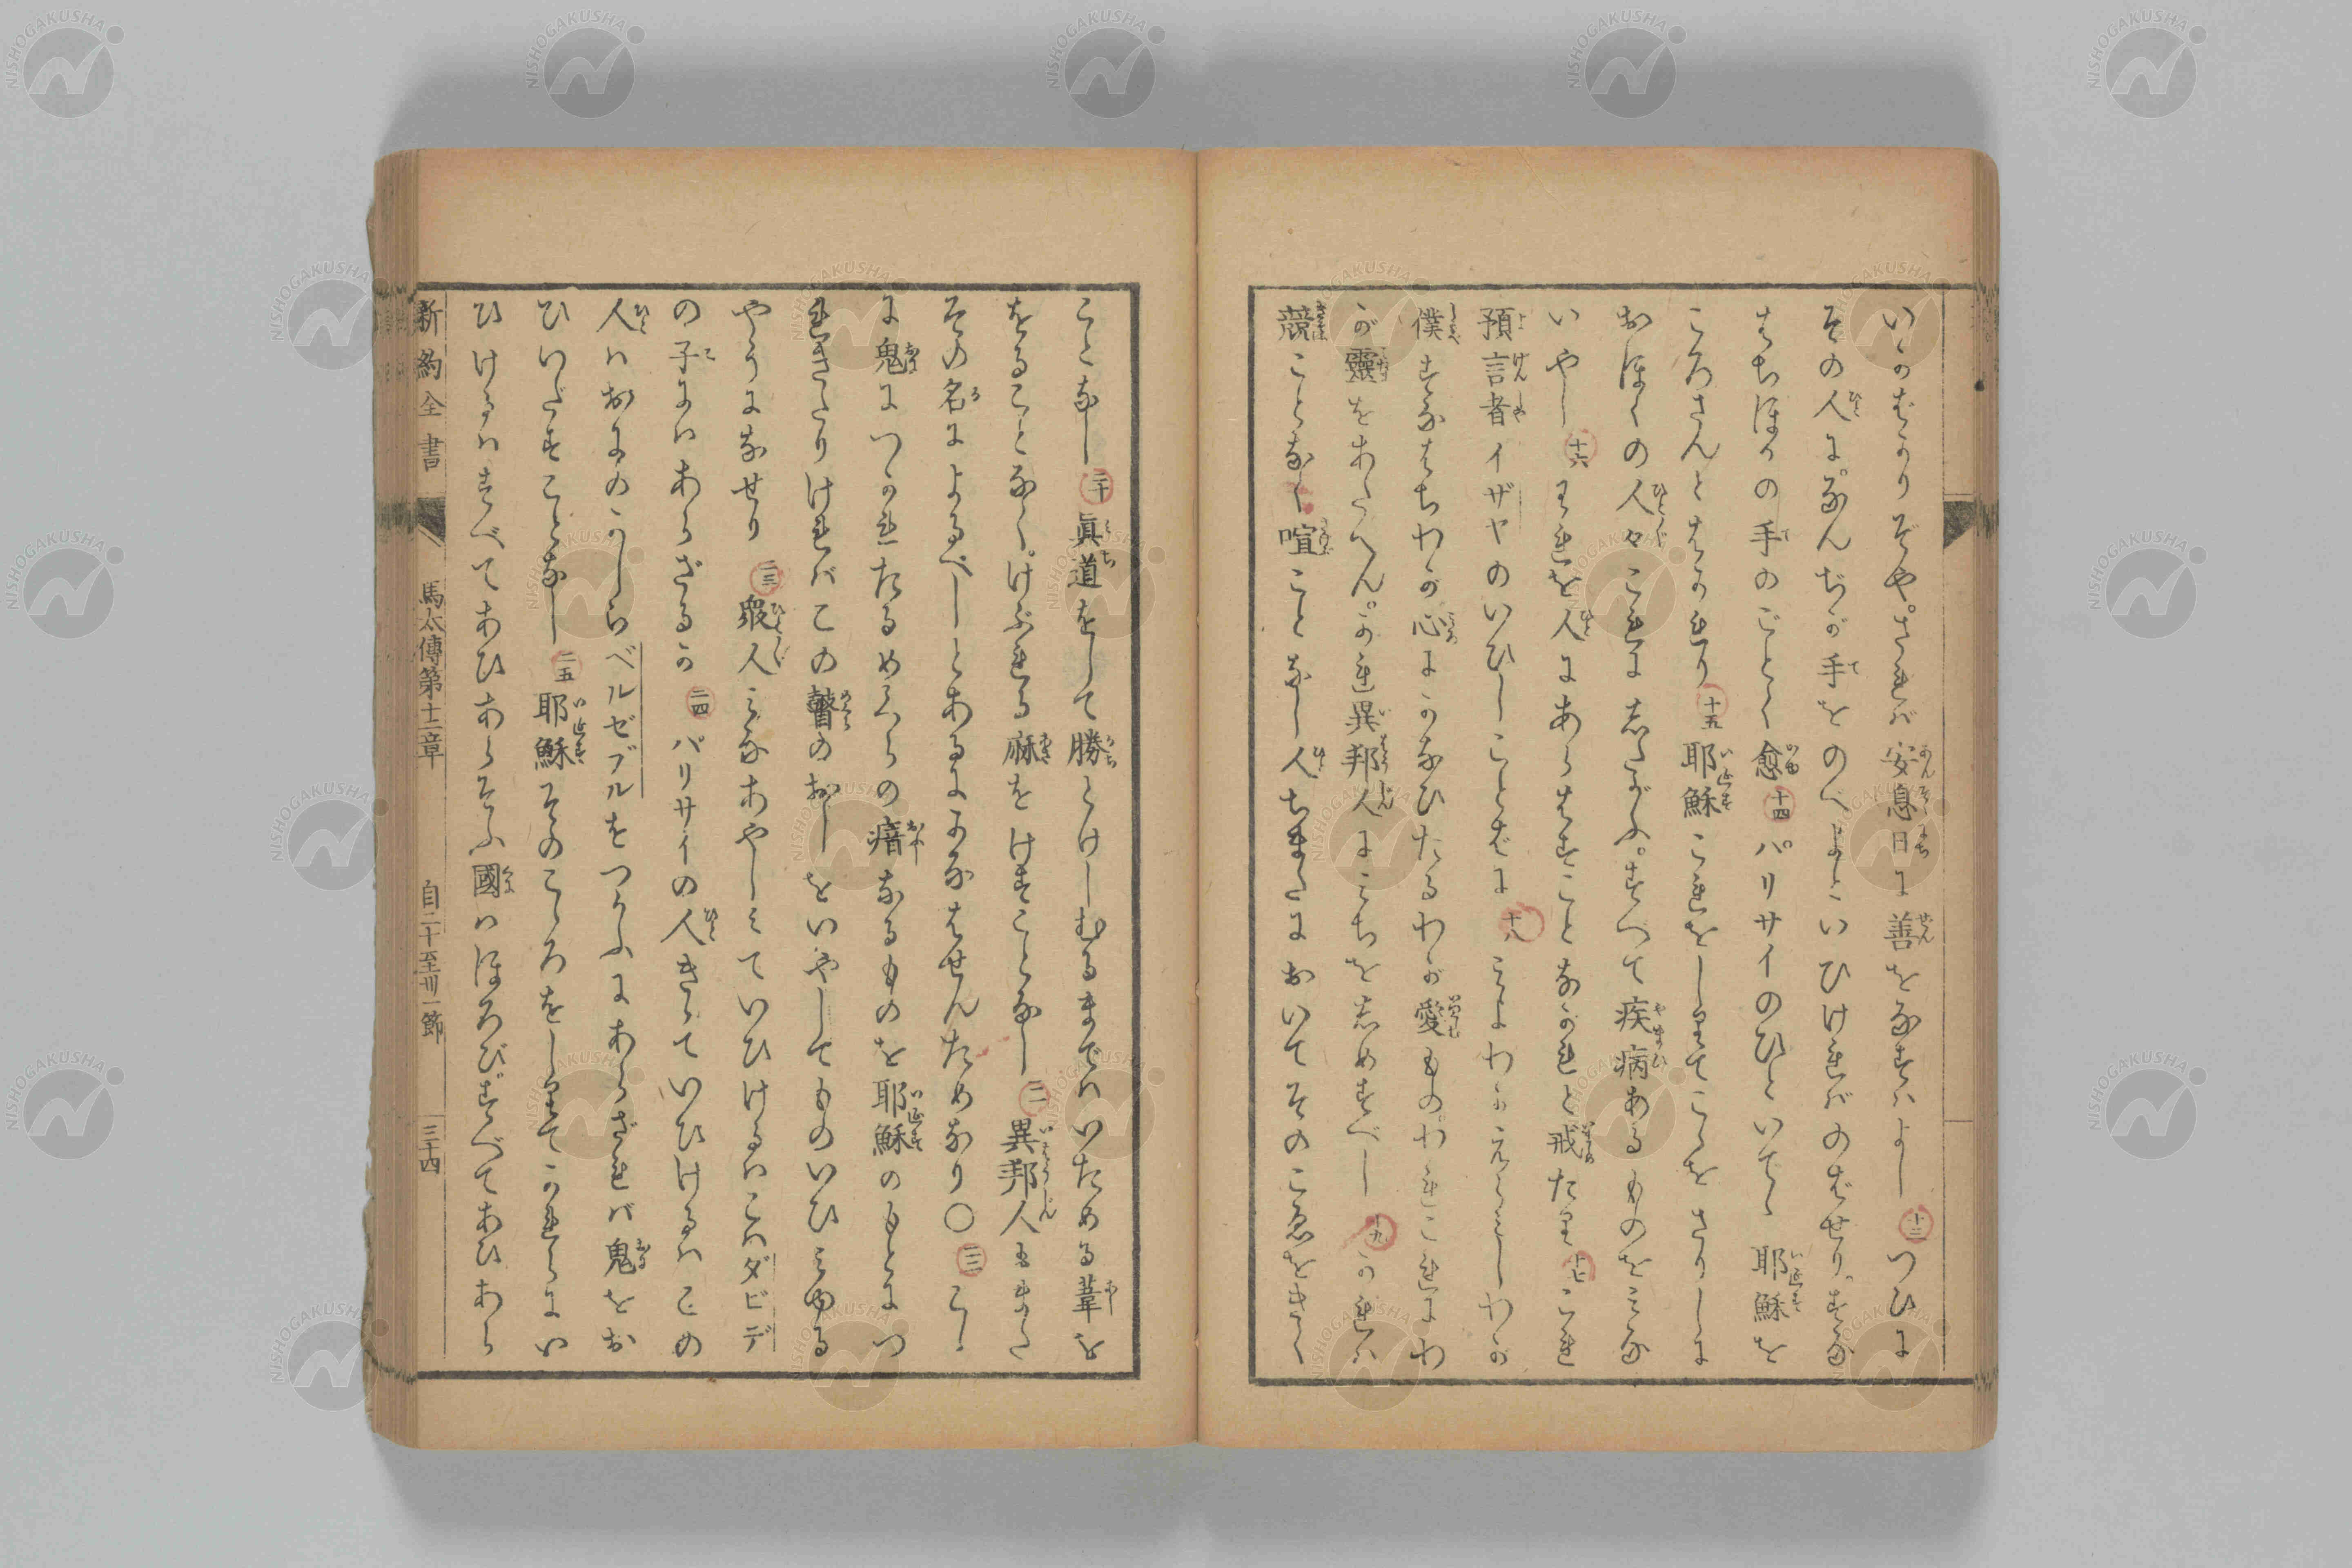 いかばかりぞや。されば安息日に善をなすはよし 十三 つひに
その人に。なんぢが手をのべよといひければのばせり。すな
はちほかの手のごとく愈 十四 パリサイのひといでゝ耶穌を
ころさんとはかれり 十五 耶穌これをしりてこゝをさりしに
おほくの人々これにしたがふ。すべて疾病あるものをみな
いやし 十六 われを人にあらはすことなかれと戒たり 十七 これ
預言者イザヤのいひしことばに 十八 みよわがえらみしわが
僕すなはちわが心にかなひたるわが愛もの。われこれにわ
が靈をあたへん。かれ異邦人にみちをしめすべし 十九 かれは
競ことなく喧ことなし人ちまたにおいてそのこゑをきく
ことなし 二十 眞道をして勝とげしむるまではいためる葦を
をることなく。けぶれる麻をけすことなし 二一 異邦人もまた
その名によるべしとあるにかなはせんためなり〇 二二 こゝ
に鬼につかれたるめくらの瘖なるものを耶穌のもとにつ
れきたりければこの瞽のおしをいやしてものいひみゆる
やうになせり 二三 衆人みなあやしみていひけるはこはダビデ
の子にはあらざるか 二四 パリサイの人きゝていひけるはこの
人はおにのかしらベルゼブルをつかふにあらざれば鬼をお
ひいだすことなし 二五 耶穌そのこゝろをしりてかれらにい
ひけるはすべてあひあらそふ國はほろびすべてあひあら
新約全書 馬太傳第十二章 自二十至卅一節 三十四